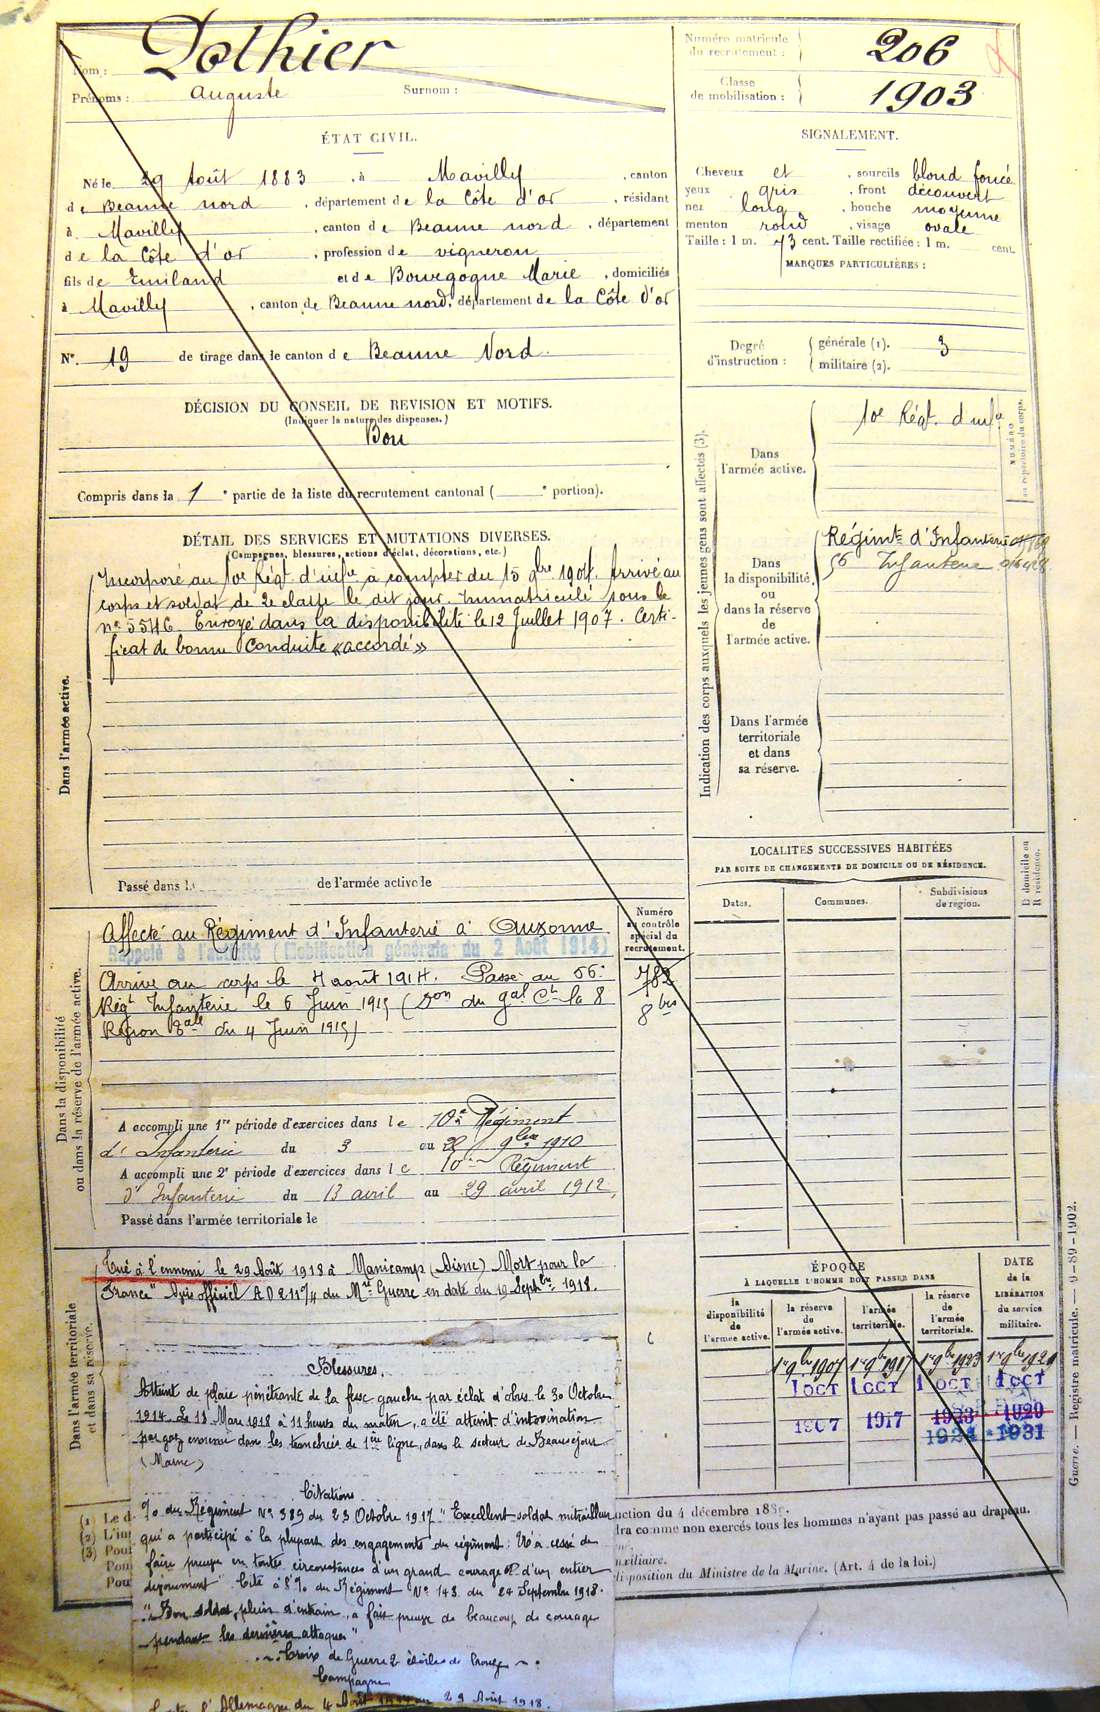 Nom : Dothier
Prénoms : Auguste Surnom :
Numéro matricule du recrutement : 206
Classe de mobilisation : 1903
ÉTAT CIVIL.
Né le 29 Août 1883, à Mavilly, canton
de Beaune nord, département de la Côte d'or, résidant
à Mavilly, canton de Beaune nord, département
de la Côte d'or, profession de vigneron
fils de Emiland et de Bourgogne Marie, domiciliés
à Mavilly, canton de Beaune nord, département de la Côte d'or
N° 19 de tirage dans le canton de Beaune Nord.
DÉCISION DU CONSEIL DE REVISION ET MOTIFS.
(Indiquer la nature des dispenses.)
Bon
Compris dans la 1e partie de la liste du recrutement cantonal ( e portion).
SIGNALEMENT.
Cheveux et , sourcils blond foncé
yeux gris , front découvert
nez long , bouche moyenne
menton rond , visage ovale
Taille : 1 m. 73 cent. Taille rectifiée : 1 m. cent.
MARQUES PARTICULIÈRES :
Degré d'instruction : générale (1). 3
militaire (2).
DÉTAIL DES SERVICES ET MUTATIONS DIVERSES.
(Campagnes, blessures, actions d'éclat, décorations, etc.)
Dans l'armée active.
Incorporé au 10e Régt d'infie à compter du 15 9bre 1904. Arrivé au
corps et soldat de 2e classe le dit jour. Immatriculé sous le
n° 5546 Envoyé dans la disponibilité le 12 Juillet 1907. Certi-
ficat de bonne conduite «accordé»
Passé dans l de l'armée active le
Indication des corps auxquels les jeunes gens sont affectés (3).
NUMÉRO au répertoire du corps.
Dans l'armée active.
10e Régt. d'infie
Dans la disponibilité ou dans la réserve de l'armée active.
Régimt d'Infanterie
56 Infanterie
Dans l'armée territoriale et dans sa réserve.
Dans la disponibilité ou dans la réserve de l'armée active.
Numéro au contrôle spécial du recrutement.
782
8 bis
Affecté au Régiment d'Infanterie à Auxonne
Rappelé à l'activité (Mobilisation générale du 2 Août 1914)
Arrivé au corps le 4 août 1914. Passé au 56e
Régt Infanterie le 6 Juin 1915 (Don du gal Ct la 8
Région du 4 Juin 1915)
A accompli une 1re période d'exercices dans le 10e Régiment
d'Infanterie du 3 au 9bre 1910
A accompli une 2e période d'exercices dans le 10e Régiment
d'Infanterie du 13 avril au 29 avril 1912,
Passé dans l'armée territoriale le
LOCALITES SUCCESSIVES HABITÉES
PAR SUITE DE CHANGEMENTS DE DOMICILE OU DE RÉSIDENCE.
Dates. Communes. Subdivisions de région. D domicile ou R résidence.
Dans l'armée territoriale et dans sa réserve.
Tué à l'ennemi le 29 Août 1918 à Manicamp (Aisne) Mort pour la
France" Avis officiel du Mre Guerre en date du 19 Septbre 1918.
ÉPOQUE
À LAQUELLE L'HOMME DOIT PASSER DANS
la disponibilité de l'armée active.
la réserve de l'armée active.
l'armée territoriale.
la réserve de l'armée territoriale.
DATE de la LIBÉRATION du service militaire.
1er 9bre 1907 1er 9bre 1917 1er 9bre 1923 1er 9bre 1929
1 OCT 1 OCT 1 OCT 1 OCT
1907 1917 1923 1929
1924 1931
Blessures.
Atteint de plaie pénétrante de la fesse gauche par éclat d'obus le 30 Octobre
1914. Le 18 Mars 1918 à 11 heures du matin, a été atteint d'intoxication
par gaz ennemi dans les tranchées de 1ère ligne, dans le secteur de Beauséjour
(Marne)
Citations
% du Régiment N° 389 du 23 Octobre 1917 "Excellent soldat mitrailleur
qui a participé à la plupart des engagements du régiment. N'a cessé de
faire preuve en toutes circonstances d'un grand courage et d'un entier
dévouement" Cité à l'% du Régiment N° 143 du 24 Septembre 1918.
"Bon soldat, plein d'entrain, a fait preuve de beaucoup de courage
pendant les dernières attaques"
Croix de Guerre 2 étoiles de bronze
Campagne
l'Allemagne du 4 Août au 29 Août 1918.
(1) Le d
(2) L'in
(3) Pour
Pou
Pou
uction du 4 décembre 188
dra comme non exercés tous les hommes n'ayant pas passé au drapeau.
uxiliaire.
disposition du Ministre de la Marine. (Art. 4 de la loi.)
Guerre. — Registre matricule. — 9-89-1902.